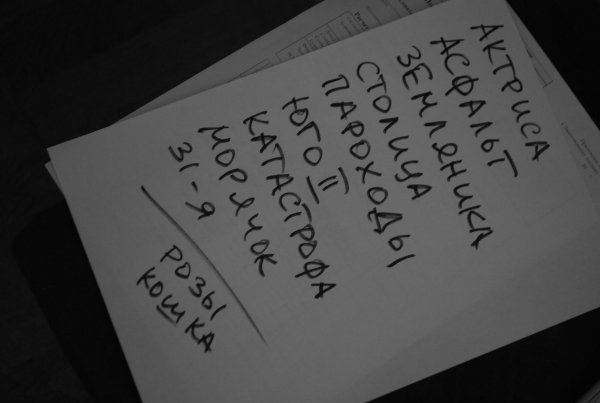 АКТРИСА
АСФАЛЬТ
ЗЕМЛЯНИКА
СТОЛИЦА
ПАРОХОДЫ
ЮГО II
КАТАСТРОФА
МОРЯЧОК
31-Я
РОЗЫ
КОШКА